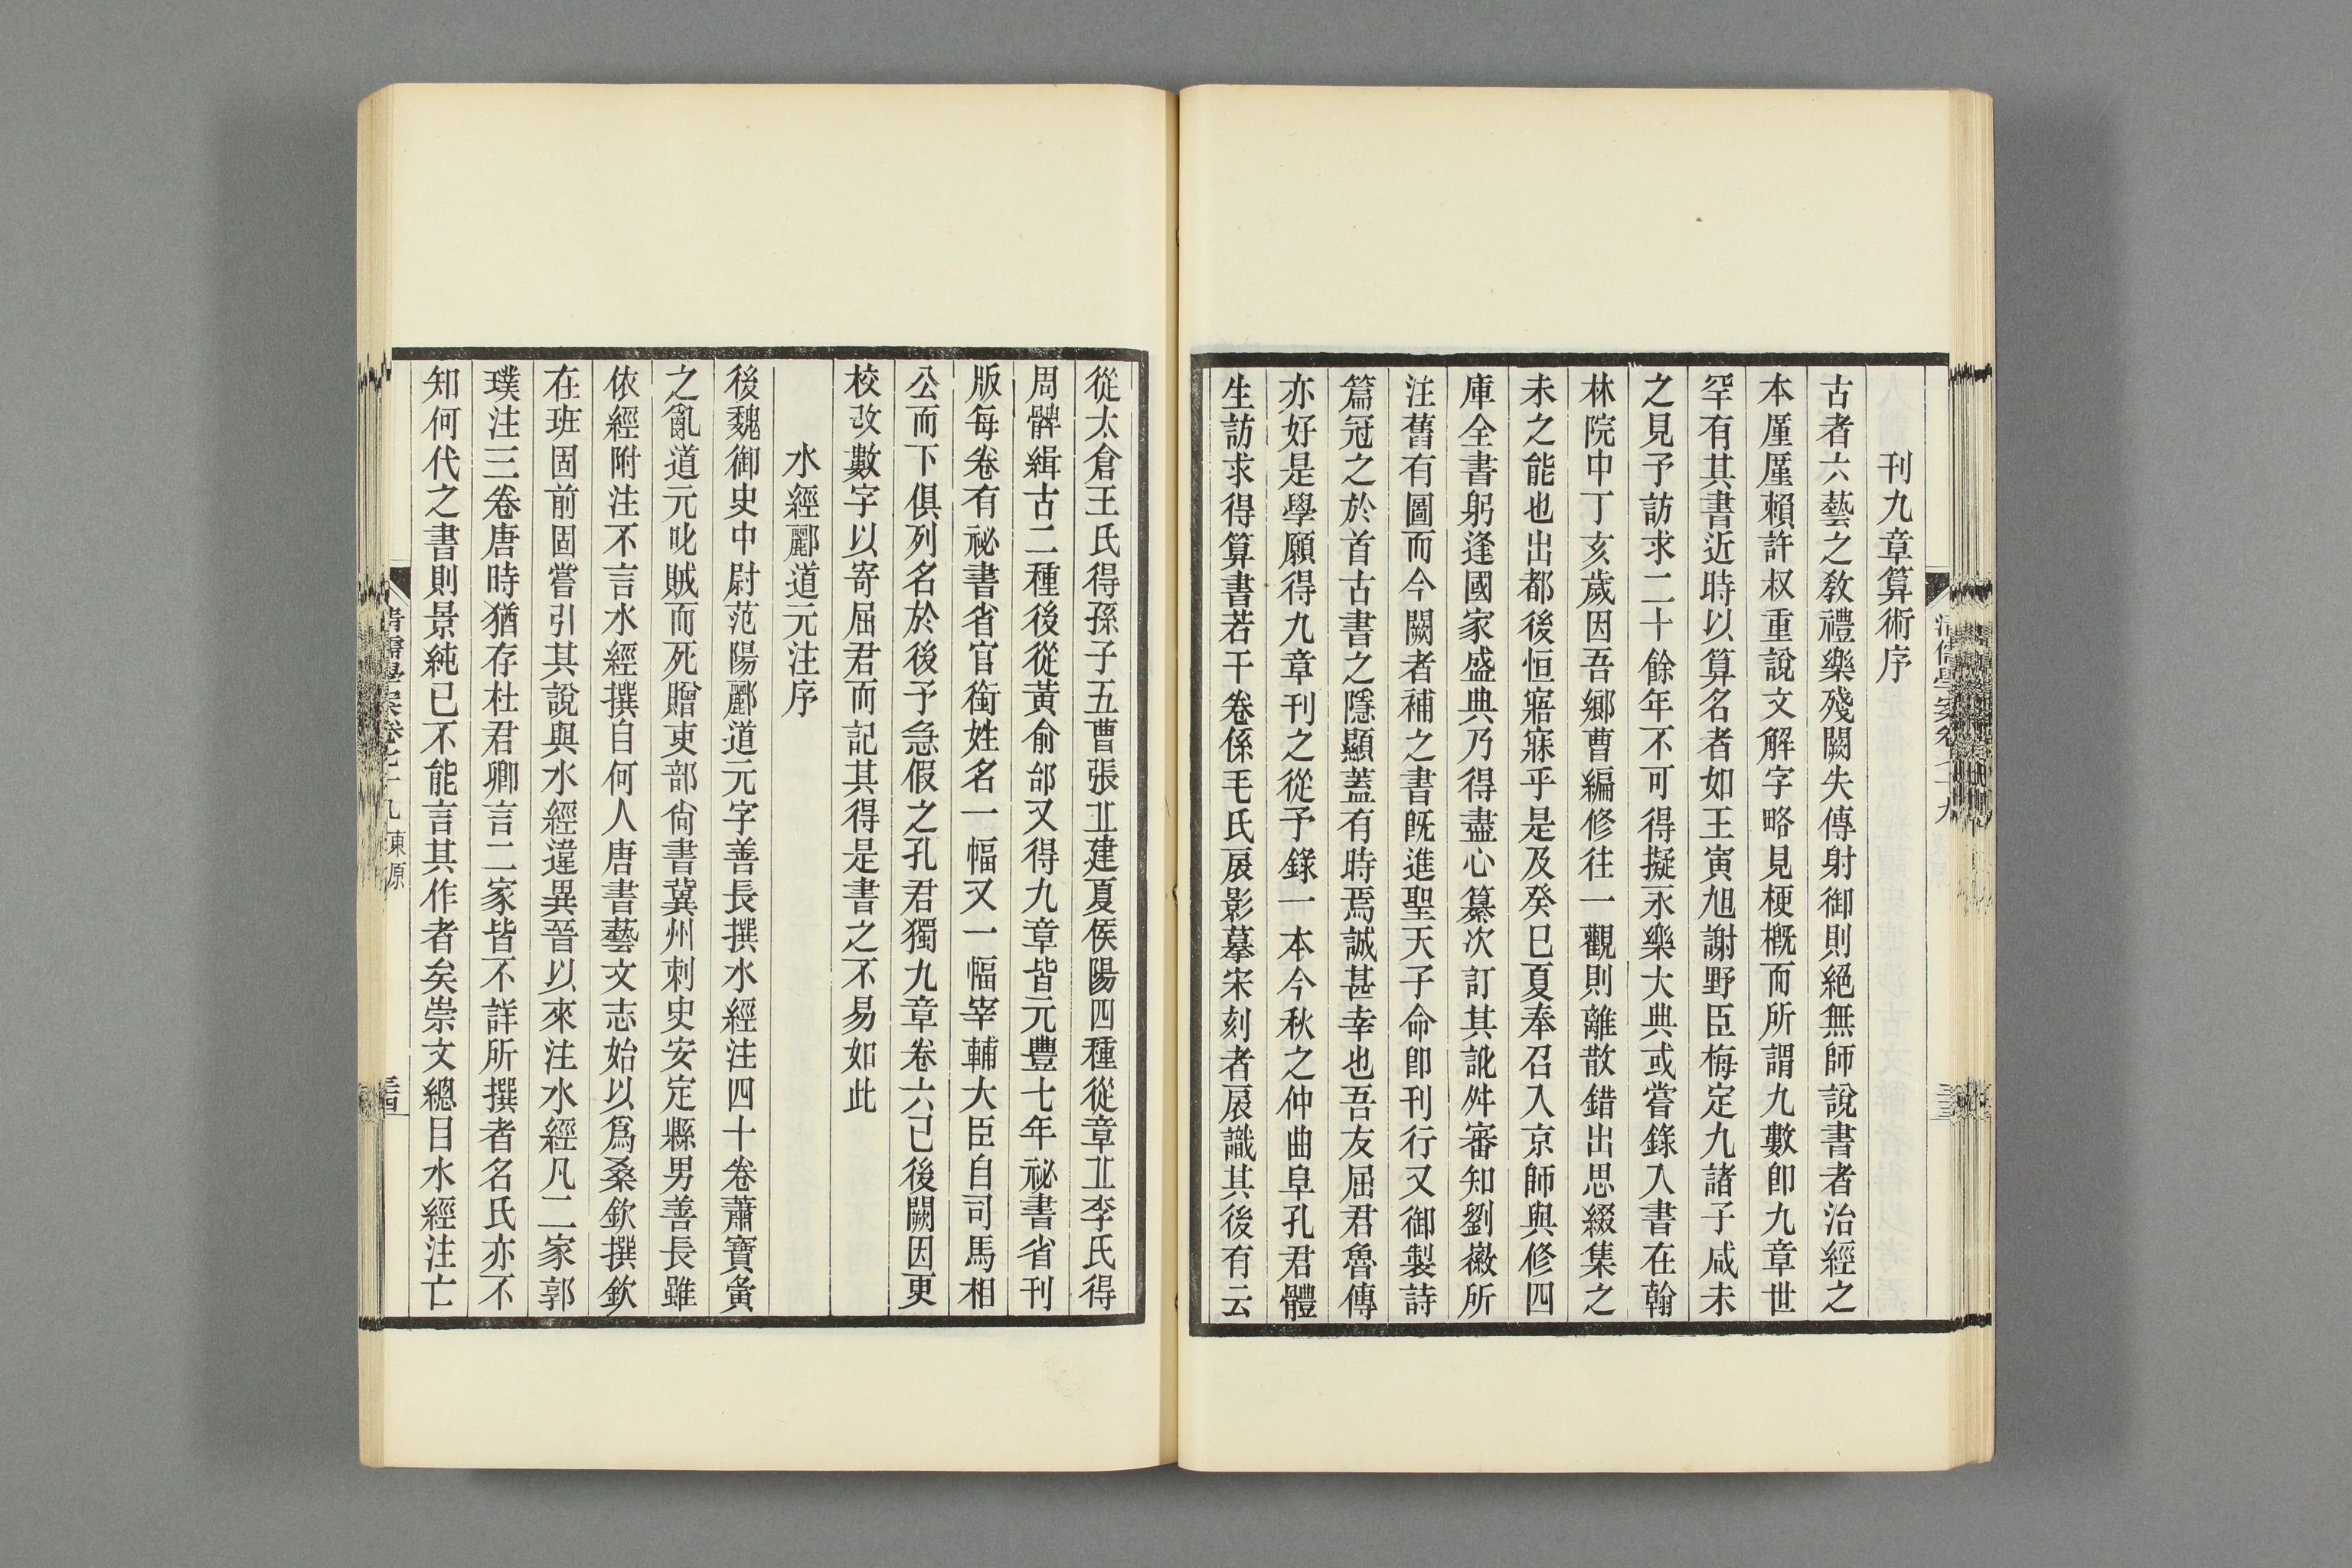 刊九章算術序
古者六藝之敎禮樂殘闕失傳射御則絕無師說書者治經之
本厪厪賴許叔重說文解字略見梗槪而所謂九數卽九章世
罕有其書近時以算名者如王寅旭謝野臣梅定九諸子咸未
之見予訪求二十餘年不可得擬永樂大典或嘗錄入書在翰
林院中丁亥歲因吾鄉曹編修往一觀則離散錯出思綴集之
未之能也出都後恒寤寐乎是及癸巳夏奉召入京師與修四
庫全書躬逢國家盛典乃得盡心纂次訂其訛舛審知劉徽所
注舊有圖而今闕者補之書旣進聖天子命卽刊行又御製詩
篇冠之於首古書之隱顯蓋有時焉誠甚幸也吾友屈君魯傳
亦好是學願得九章刊之從予錄一本今秋之仲曲阜孔君體
生訪求得算書若干卷係毛氏扆影摹宋刻者扆識其後有云
從太倉王氏得孫子五曹張丠建夏侯陽四種從章丠李氏得
周髀緝古二種後從黃俞邰又得九章皆元豐七年祕書省刊
版每卷有祕書省官銜姓名一幅又一幅宰輔大臣自司馬相
公而下俱列名於後予急假之孔君獨九章卷六已後闕因更
校改數字以寄屈君而記其得是書之不易如此
水經酈道元注序
後魏御史中尉范陽酈道元字善長撰水經注四十卷蕭寶夤
之亂道元叱賊而死贈吏部尙書冀州刺史安定縣男善長雖
依經附注不言水經撰自何人唐書藝文志始以爲桑欽撰欽
在班固前固嘗引其說與水經違異晉以來注水經凡二家郭
璞注三卷唐時猶存杜君卿言二家皆不詳所撰者名氏亦不
知何代之書則景純已不能言其作者矣崇文總目水經注亡